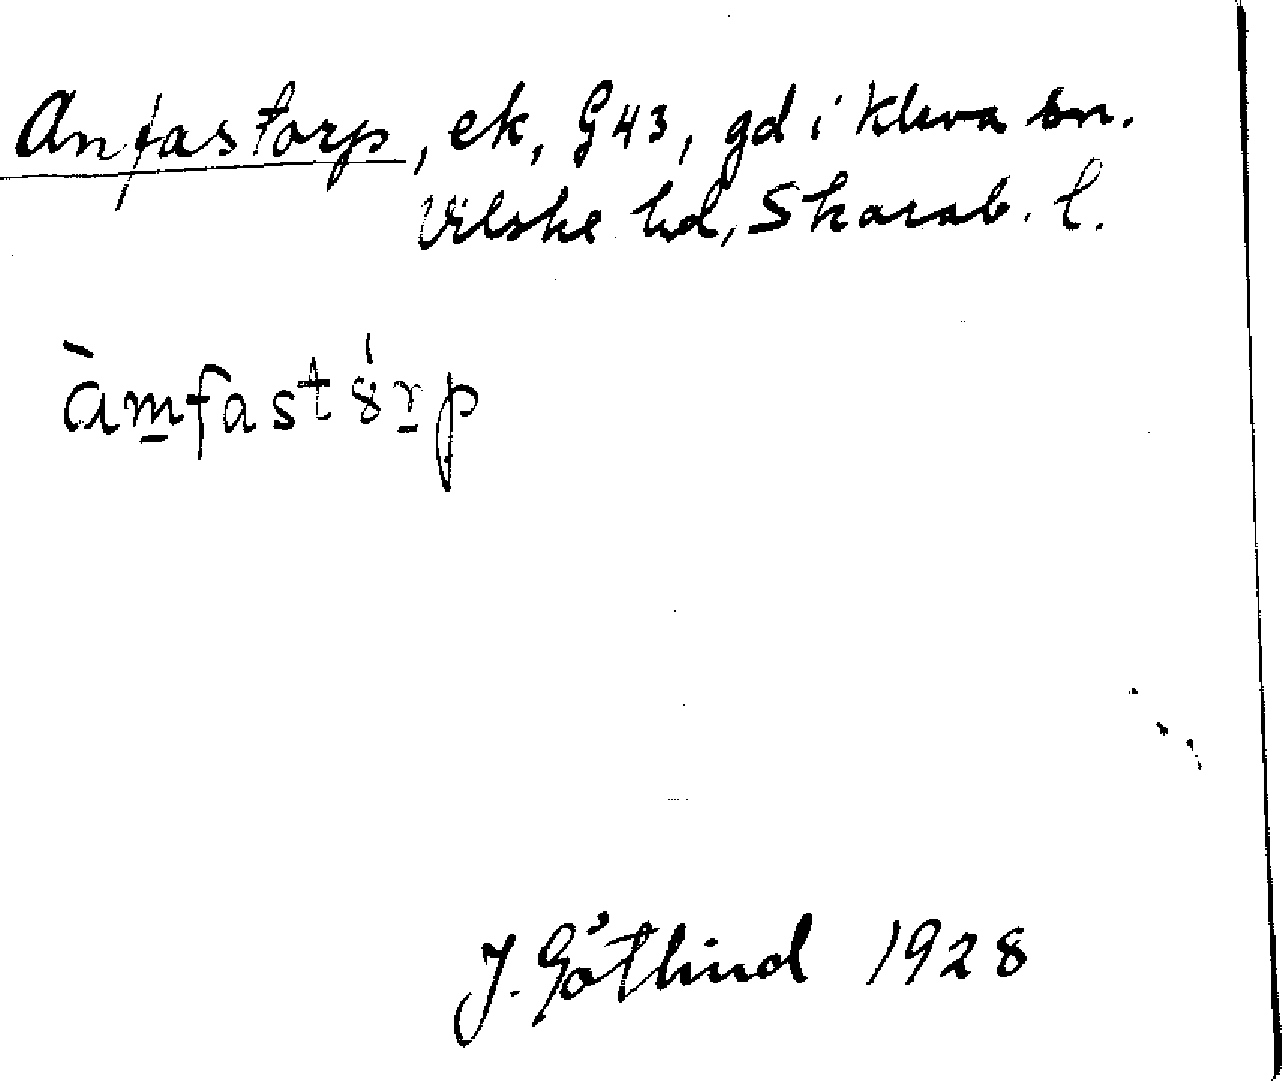 Anfastorp, ek, G43, gd i Kleva sn.
Vilske hd, Skarab. l.
àm̲fast8́r̲p
J. Götlind 1928